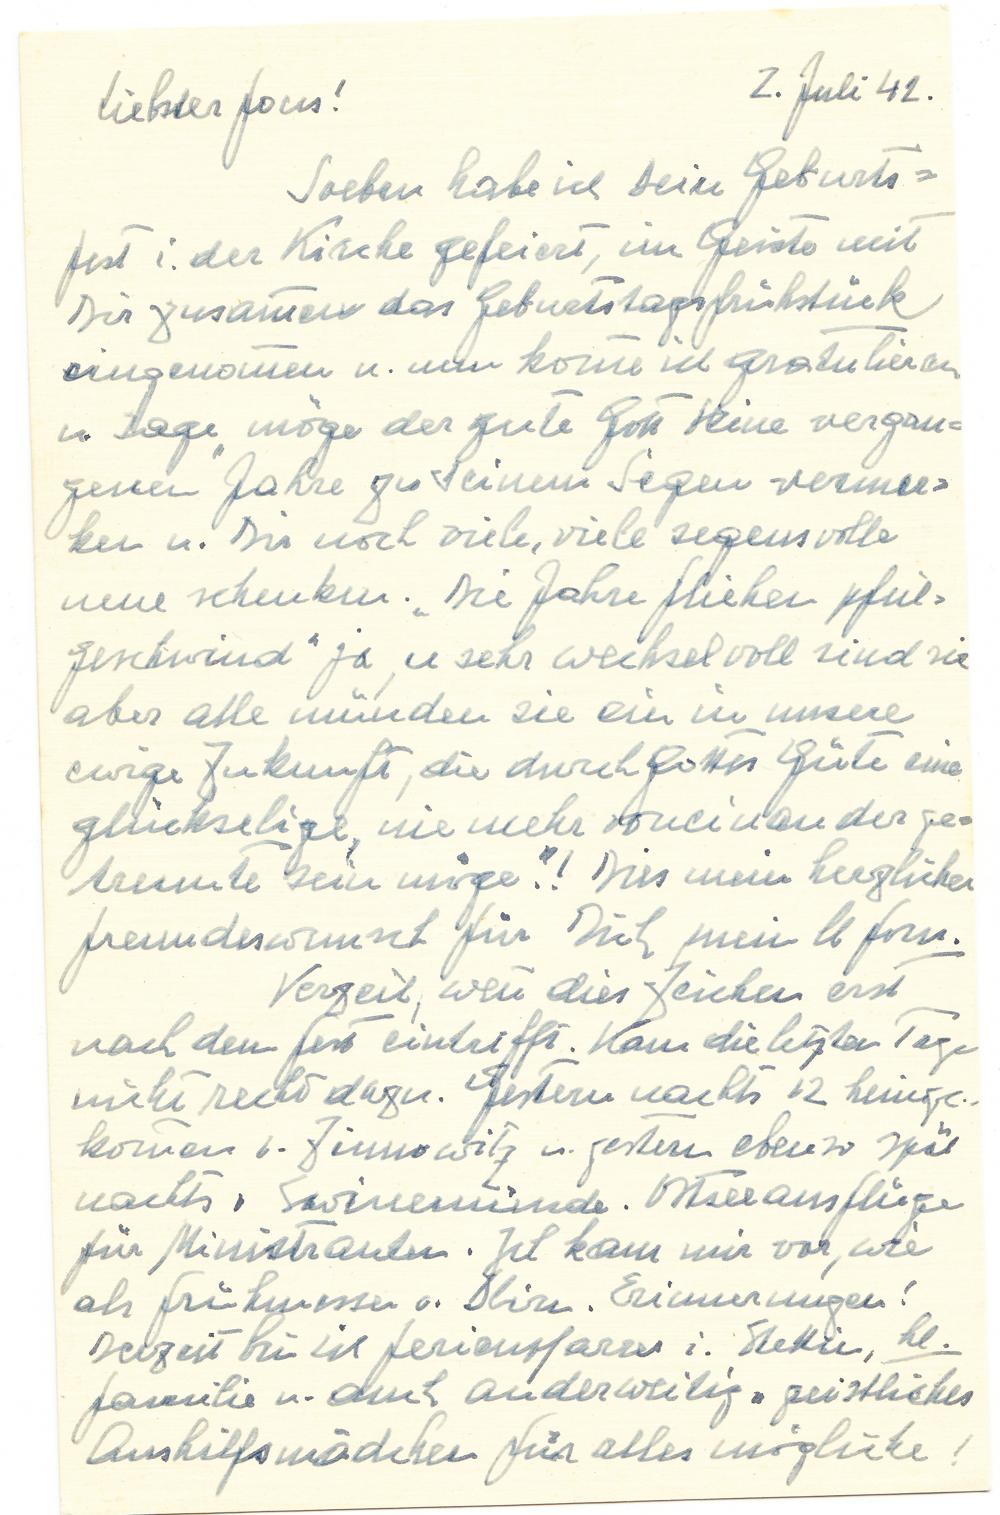 Liebster                    2. Juli 42.
Soeben habe ich Dein Geburts=
fest i. der Kirche gefeiert, im Geiste mit
Dir zusam̅en das Geburtstagsfrühstück
eingenom̅en u. nun kom̅e ich gratulieren
u. sage „möge der gute Gott Deine vergan=
genen Jahre zu Deinem Segen vermer=
ken u. Dir noch viele, viele segensvolle
neue schenken. „Die Jahre fliehen pfeil=
geschwind“ ja, u sehr wechselvoll sind sie
aber alle münden sie ein in unsere
ewige Zukunft, die durch Gottes Güte eine
glückselige, nie mehr voneinander ge=
trennte sein möge“! Dies mein herzlicher
Freundeswunsch für Dich, mein lb
Verzeih, wen̅ dies Zeichen erst
nach dem Fest eintrifft. Kam die letzten Tage
nicht recht dazu. Gestern nachts 12 heimge=
kom̅en v. Zinnowitz u. gestern ebenso spät
nachts v. Swinemünde. Ostseeausflüge
für Ministranten. Ich kam mir vor, wie
als Frühmesser v. Erinnerungen!
Derzeit bin ich Ferienpfarrer i. Stettin, hl.
Familie u. auch anderweitig „geistliches
Aushilfsmädchen für alles mögliche!